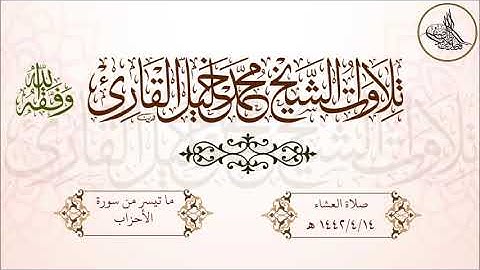 تلاوات الشيخ محمد خليل القارئ
وفقه الله
صلاة العشاء
١٤٤٢/٤/١٤ هـ
ما تيسر من سورة
الأحزاب